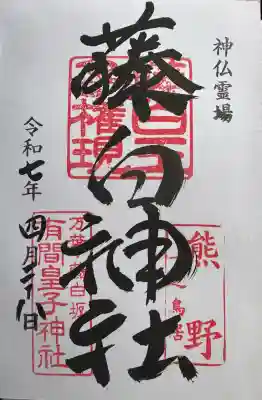 神仏霊場
藤白神社
令和七年
四月二十八日
藤白王
子権現
熊野
一之鳥居
万葉藤白坂
有間皇子神社